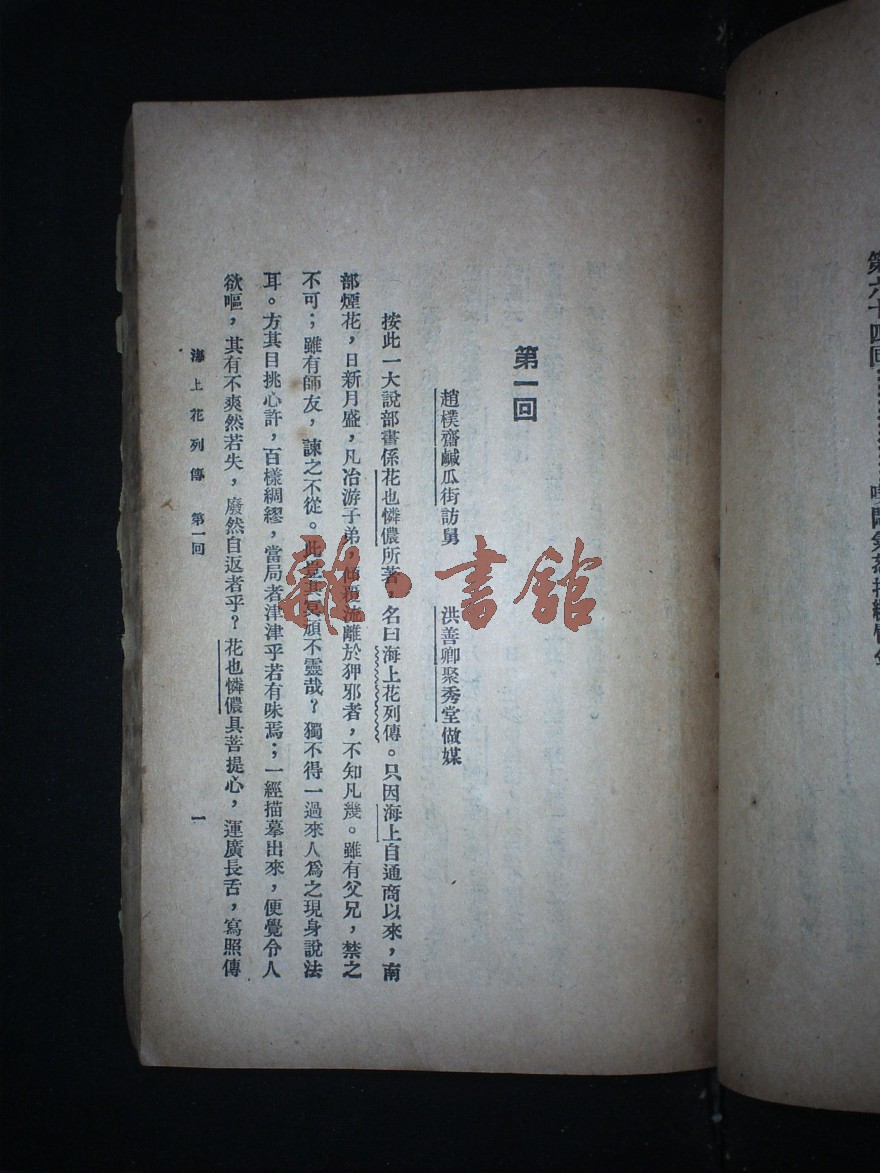 第六十四回
第一回
趙樸齋鹹瓜街訪舅　洪善卿聚秀堂做媒
按此一大說部書係花也憐儂所著，名曰海上花列傳。只因海上自通商以來，南
部煙花，日新月盛，凡冶游子弟，傾覆流離於狎邪者，不知凡幾。雖有父兄，禁之
不可；雖有師友，諫之不從。此豈其冥頑不靈哉？獨不得一過來人爲之現身說法
耳。方其目挑心許，百樣綢繆，當局者津津乎若有味焉；一經描摹出來，便覺令人
欲嘔，其有不爽然若失，廢然自返者乎？花也憐儂具菩提心，運廣長舌，寫照傳
海上花列傳　第一回
一
雜·書館